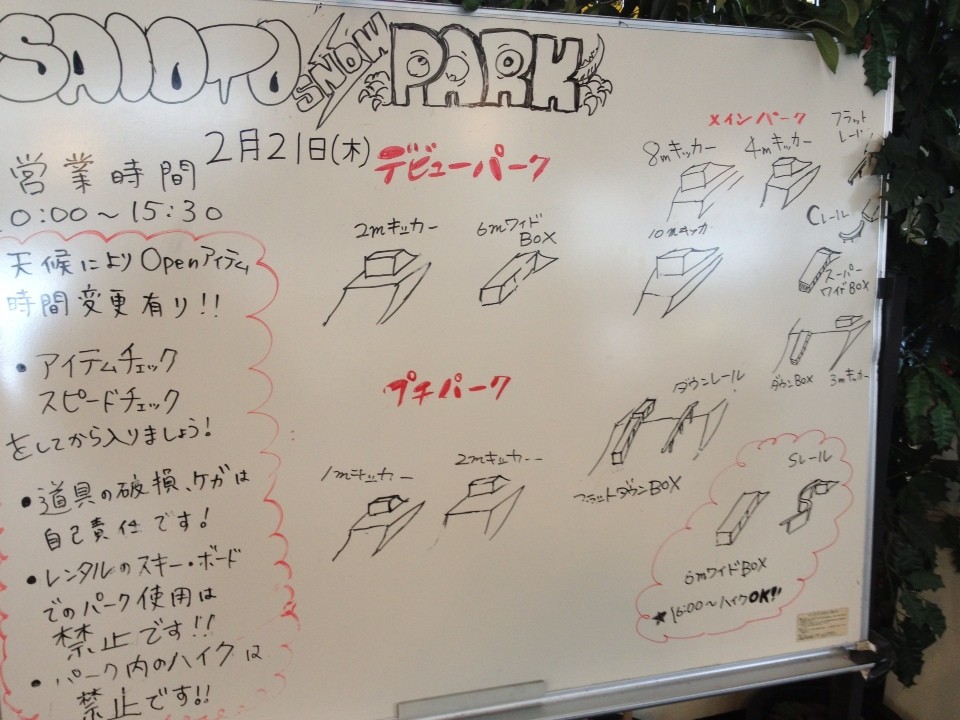 SAIOTO SNOW PARK
2月21日(木)
営業時間
0:00～15:30
天候によりOpenアイテム
時間変更有り!!
・アイテムチェック
スピードチェック
をしてから入りましょう!
・道具の破損、ケガは
自己責任です!
・レンタルのスキー・ボード
でのパーク使用は
禁止です!!
・パーク内のハイクは
禁止です!!
デビューパーク
2mキッカー
6mワイド
BOX
プチパーク
1mキッカー
2mキッカー
メインパーク
8mキッカー
4mキッカー
フラット
レール
10mキッカ
Cレール
スーパー
ワイドBOX
ダウンBOX
3mキッカー
ダウンレール
フラットダウンBOX
Sレール
6mワイドBOX
★16:00～ハイクOK!!